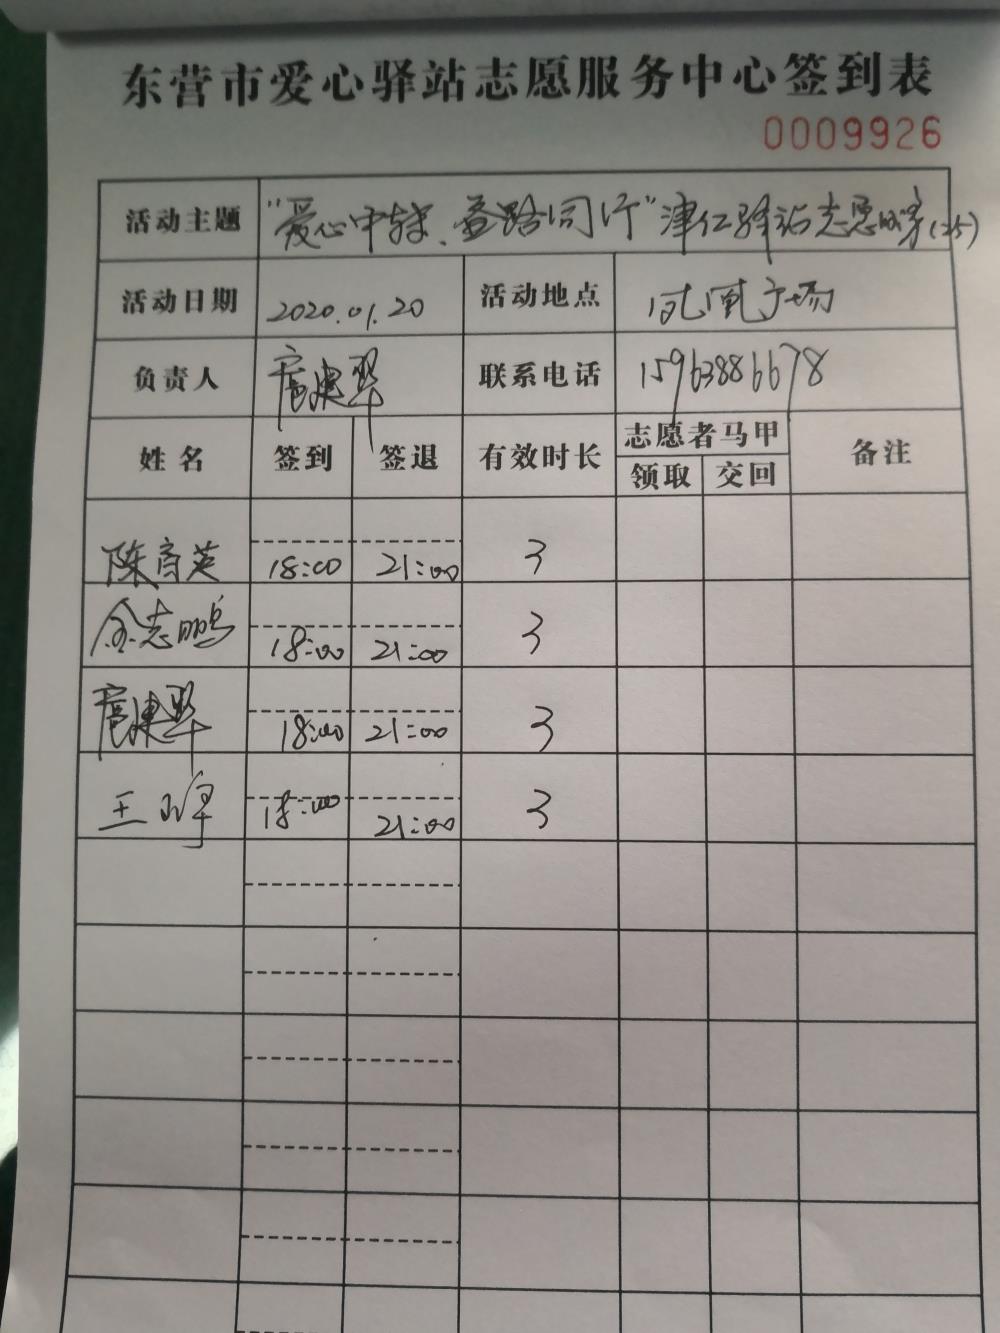 东营市爱心驿站志愿服务中心签到表
0009926
活动主题 "爱心中转、益路同行"津仁驿站志愿服务(125)
活动日期 2020.01.20 活动地点 凤凰广场
负责人 建翠 联系电话 15963886678
姓名 签到 签退 有效时长 志愿者马甲 备注
领取 交回
陈育英 18:00 21:00 3
志鹏 18:00 21:00 3
建翠 18:00 21:00 3
王峰 18:00 21:00 3